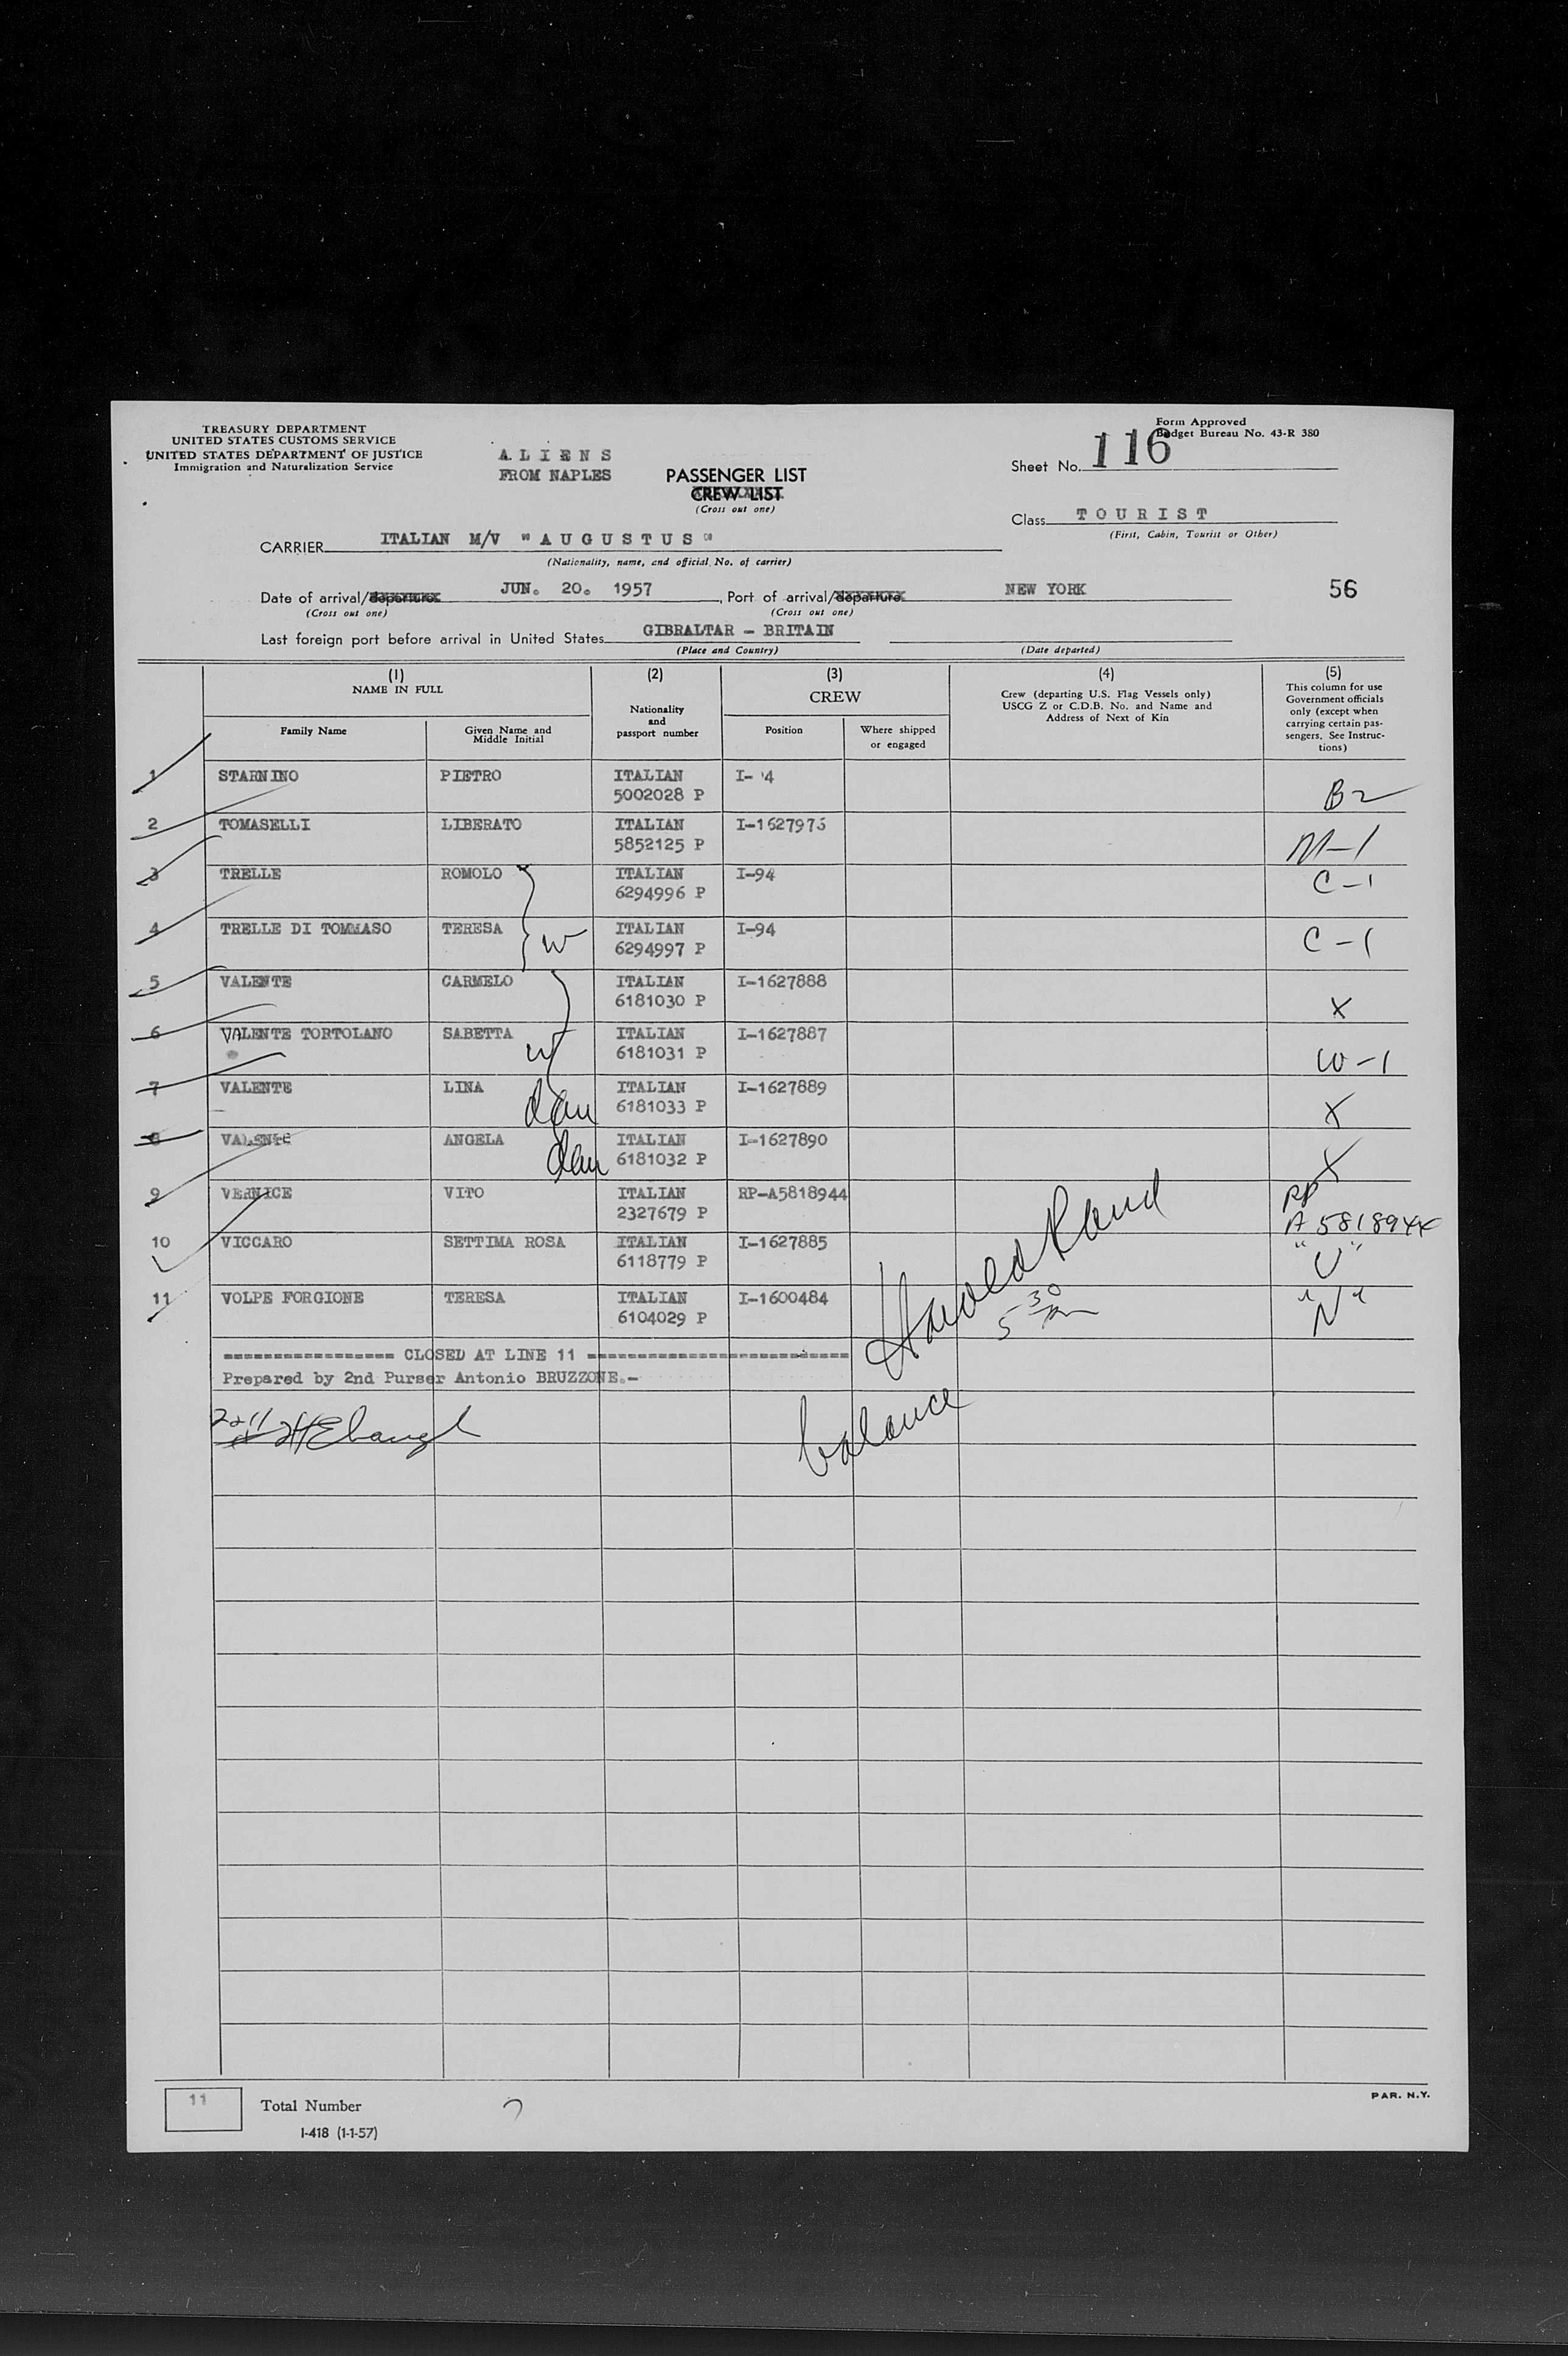 TREASURY DEPARTMENT
UNITED STATES CUSTOMS SERVICE
UNITED STATES DEPARTMENT OF JUSTICE
Immigration and Naturalization Service
A L I E N S
FROM NAPLES
PASSENGER LIST
CREW LIST
(Cross out one)
Form Approved
Budget Bureau No. 43-R 380
Sheet No. 116
Class TOURIST
(First, Cabin, Tourist or Other)
CARRIER ITALIAN M/V "AUGUSTUS"
(Nationality, name, and official No. of carrier)
Date of arrival/departure JUN. 20. 1957, Port of arrival/departure NEW YORK 56
(Cross out one) (Cross out one)
Last foreign port before arrival in United States GIBRALTAR - BRITAIN
(Place and Country) (Date departed)
(1) NAME IN FULL
Family Name
Given Name and Middle Initial
(2) Nationality and passport number
(3) CREW
Position
Where shipped or engaged
(4) Crew (departing U.S. Flag Vessels only) USCG Z or C.D.B. No. and Name and Address of Next of Kin
(5) This column for use Government officials only (except when carrying certain passengers. See Instructions)
1 STARNINO PIETRO ITALIAN I- 4
5002028 P B2
2 TOMASELLI LIBERATO ITALIAN I-1627975
5852125 P M-1
3 TRELLE ROMOLO ITALIAN I-94 C-1
6294996 P
4 TRELLE DI TOMMASO TERESA W ITALIAN I-94 C-1
6294997 P
5 VALENTE CARMELO ITALIAN I-1627888
6181030 P X
6 VALENTE TORTOLANO SABETTA W ITALIAN I-1627887
6181031 P W-1
7 VALENTE LINA dau ITALIAN I-1627889
6181033 P X
8 VALENTE ANGELA dau ITALIAN I-1627890
6181032 P X
9 VERNICE VITO ITALIAN RP-A5818944 RP
2327679 P A5818944
10 VICCARO SETTIMA ROSA ITALIAN I-1627885 "U"
6118779 P
11 VOLPE FORGIONE TERESA ITALIAN I-1600484 "N"
6104029 P
Harold Rand
5 30
================= CLOSED AT LINE 11 ==========================
Prepared by 2nd Purser Antonio BRUZZONE.-
balance
11 Total Number
I-418 (1-1-57)
PAR. N.Y.